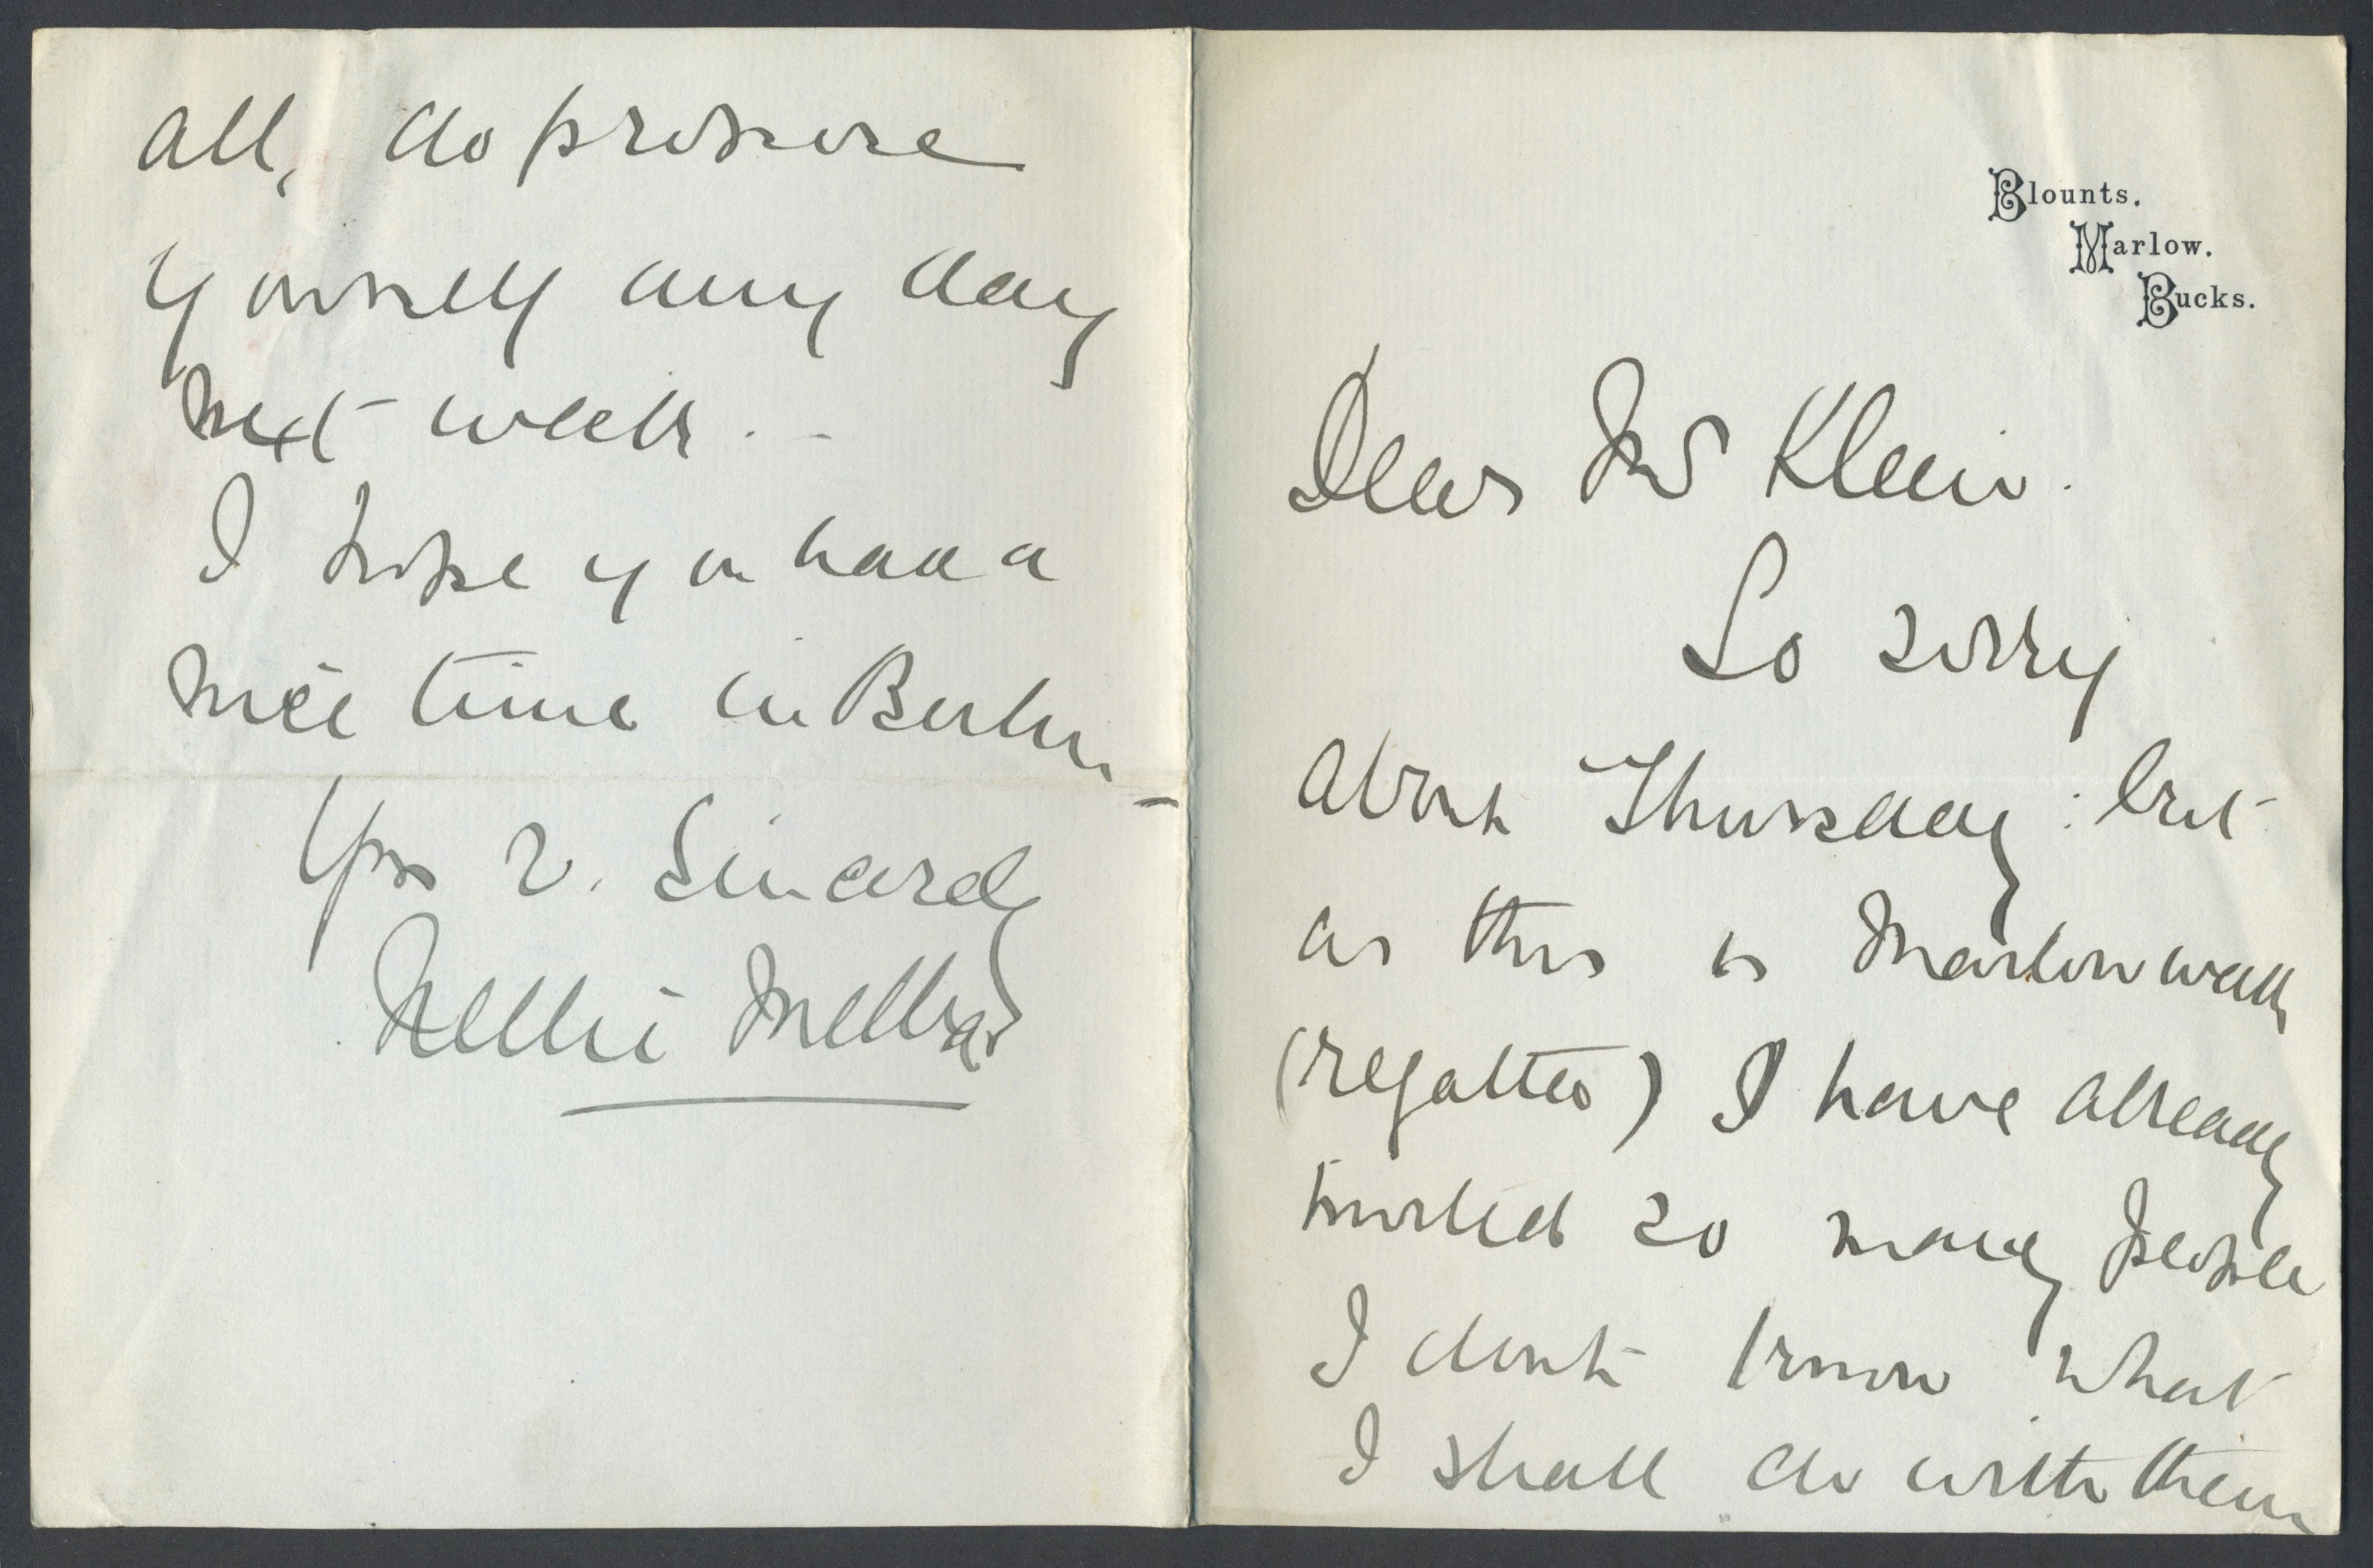 Blounts.
Marlow.
Bucks.
Dear Mr Klein.
So sorry
about Thursday: but
as this is Marlow week
(regatta) I have already
invited so many people
I dont know what
I shall do with them
all, do propose
yourself any day
next week. -
I hope you had a
nice time in Berlin -
Yrs v. Sincerely
Nellie Melba